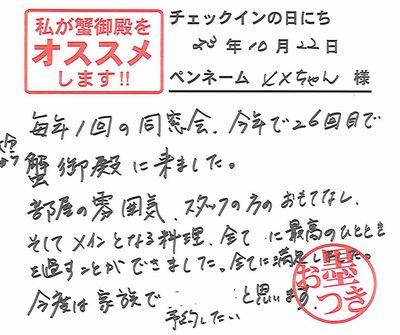 私が蟹御殿を
オススメ
します!!
チェックインの日にち
年10月22日
ペンネーム ヒメちゃん 様
毎年1回の同窓会、今年で26回目で
蟹御殿に来ました。
部屋の雰囲気、スタッフの方のおもてなし、
そしてメインとなる料理、全てに最高のひととき
を過すことができました。全てに満足しました。
今度は家族で予約したいと思います。
お墨つき